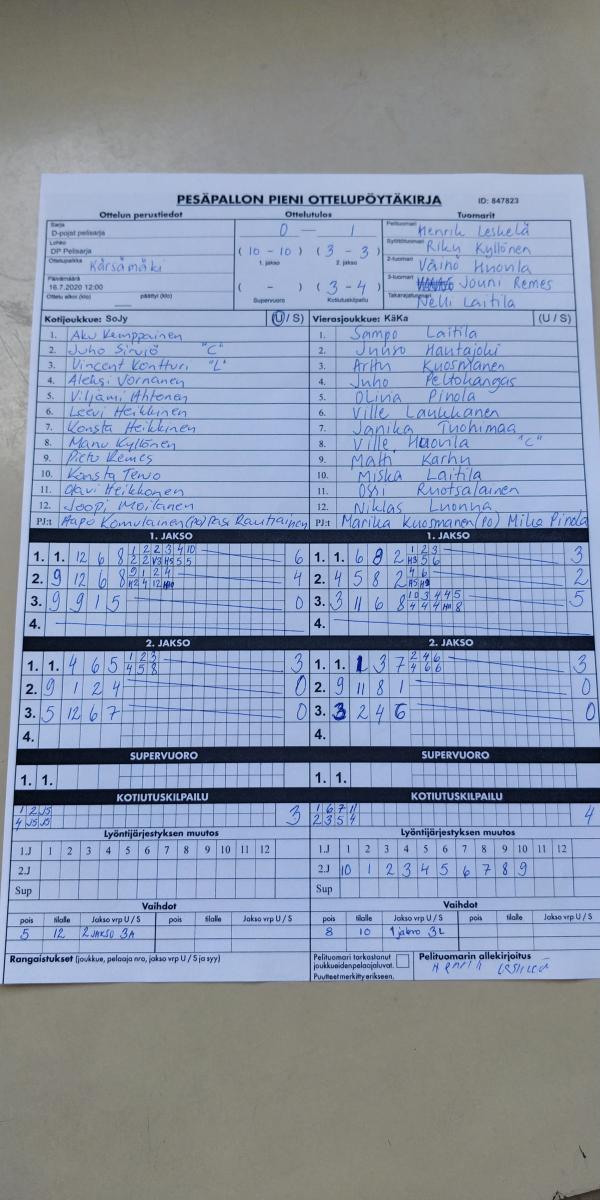 PESÄPALLON PIENI OTTELUPÖYTÄKIRJA ID: 847823
Ottelun perustiedot Ottelutulos Tuomarit
Sarja
D-pojat pelisarja 0 — 1 Pelituomari Henrik Leskelä
Lohko
DP Pelisarja (10 - 10) (3 - 3) Syöttötuomari Riku Kyllönen
Ottelupaikka Kärsämäki 1. jakso 2. jakso 2-tuomari Väinö Huovila
Päivämäärä
16.7.2020 12:00 ( - ) (3 - 4) 3-tuomari Jouni Remes
Ottelu alkoi (klo) päättyi (klo) Supervuoro Kotiutuskilpailu Takarajatuomari Nelli Laitila
Kotijoukkue: SoJy (U / S) Vierasjoukkue: KäKa (U / S)
1. Aku Kemppainen 1. Sampo Laitila
2. Juho Sirviö "C" 2. Juuso Hautajoki
3. Vincent Kontturi "L" 3. Arttu Kuosmanen
4. Aleksi Vornanen 4. Juho Peltokangas
5. Viljami Ahtonen 5. Olina Pinola
6. Leevi Heikkinen 6. Ville Laukkanen
7. Konsta Heikkinen 7. Janika Tuohimaa
8. Manu Kyllönen 8. Ville Huovila "C"
9. Pietu Remes 9. Matti Karhu
10. Konsta Tervo 10. Miska Laitila
11. Olavi Heikkonen 11. Ossi Ruotsalainen
12. Joopi Moilanen 12. Niklas Luonua
PJ:t Aapo Komulainen (PO) Pasi Rautiainen PJ:t Marika Kuosmanen (PO) Mika Pinola
1. JAKSO 1. JAKSO
1. 1. 12 6 8 1 2 2 3 4 10 6 1. 1. 6 8 2 1 2 3 3
2 2 V3 H5 5 5 H3 5 6
2. 9 12 6 8 9 1 2 4 4 2. 4 5 8 2 4 6 2
3. 9 9 1 5 0 3. 3 11 6 8 10 3 4 4 5 5
4 4 4 8
4. 4.
2. JAKSO 2. JAKSO
1. 1. 4 6 5 1 2 3 3 1. 1. 1 3 7 2 4 6 3
4 5 8 4 6 6
2. 9 1 2 4 0 2. 9 11 8 1 0
3. 5 12 6 7 0 3. 3 2 4 6 0
4. 4.
SUPERVUORO SUPERVUORO
1. 1. 1. 1.
KOTIUTUSKILPAILU KOTIUTUSKILPAILU
1 2 J5 3 1 6 7 11 4
4 J5 J5 2 3 5 4
Lyöntijärjestyksen muutos Lyöntijärjestyksen muutos
1.J 1 2 3 4 5 6 7 8 9 10 11 12 1.J 1 2 3 4 5 6 7 8 9 10 11 12
2.J 2.J 10 1 2 3 4 5 6 7 8 9
Sup Sup
Vaihdot Vaihdot
pois tilalle Jakso vrp U / S pois tilalle Jakso vrp U / S pois tilalle Jakso vrp U / S pois tilalle Jakso vrp U / S
5 12 2 JAKSO 3A 8 10 1 jakso 3L
Rangaistukset (joukkue, pelaaja nro, jakso vrp U / S ja syy) Pelituomari tarkastanut Pelituomarin allekirjoitus
joukkueiden pelaajaluvat.
Puutteet merkitty erikseen.